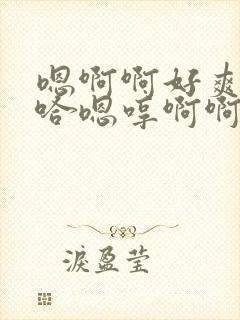 嗯啊啊好爽
哈嗯哼啊啊
淚盈莹